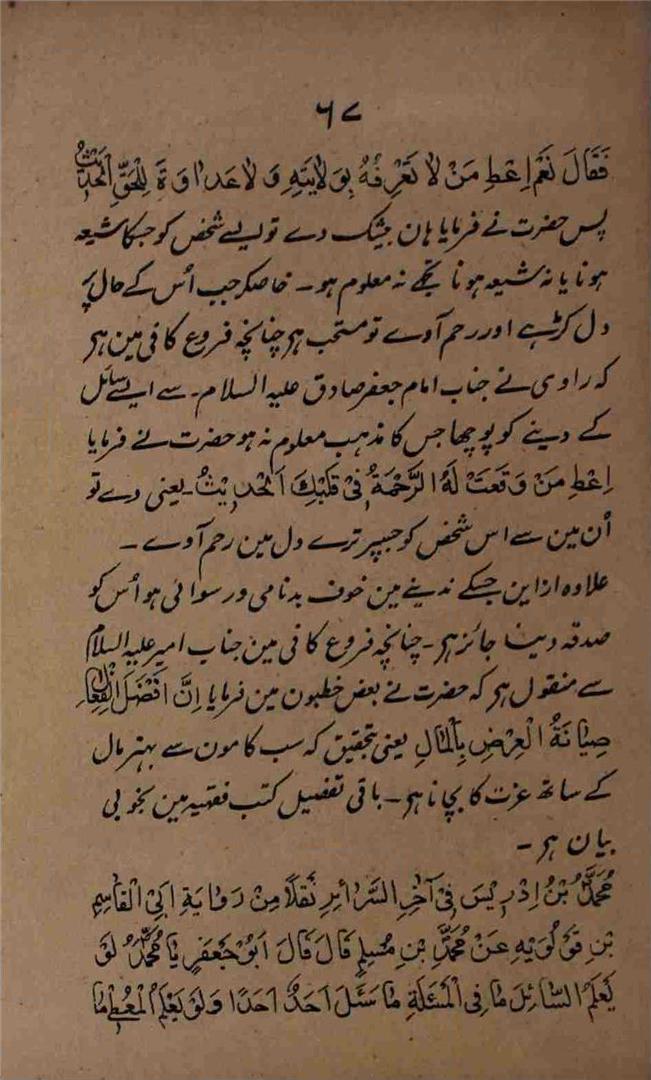 ۶۷
فَقَالَ نَعَمْ اِعْطِ مَنْ لَا تَعْرِفُهُ بِوَلَايَتِهِ وَلَا عَدَاوَةَ لِلْحَقِّ اَلْحَدِيْثُ
پس حضرت نے فرمایا ہان بیشک دے تو ایسے شخص کو جسکا شیعہ
ہونا یا نہ شیعہ ہونا تجھے نہ معلوم ہو ۔ خاصکر جب اُس کے حال پر
دل کڑہے اور رحم آوے تو مستحب ہر چنانچہ فروع کافی مین ہر
کہ راوی نے جناب امام جعفر صادق علیہ السلام ۔ سے ایسے سائل
کے دینے کو پوچھا جس کا مذہب معلوم نہ ہو حضرت نے فرمایا
اِعْطِ مَنْ وَقَعَتْ لَهُ الرَّحْمَةُ فِيْ قَلْبِكَ اَلْحَدِيْثُ ۔ یعنی دے تو
اُن مین سے اس شخص کو جسپر ترے دل مین رحم آوے ۔
علاوہ ازاین جسکے ندینے مین خوف بدنامی و رسوائی ہو اُس کو
صدقہ دینا جائز ہر ۔ چنانچہ فروع کافی مین جناب امیر علیہ السلام
سے منقول ہر کہ حضرت نے بعض خطبون مین فرمایا اِنَّ اَفْضَلَ الْفِعَالِ
صِيَانَةُ الْعِرْضِ بِالْمَالِ یعنی بتحقیق کہ سب کامون سے بہتر مال
کے ساتھ عزت کا بچانا ہر ۔ باقی تفصیل کتب فقہیہ مین بخوبی
بیان ہر ۔
مُحَمَّدُ بْنُ اِدْرِيْسَ فِيْ آخِرِ السَّرَائِرِ نَقْلًا مِنْ رَوَايَةِ اَبِي الْقَاسِمِ
بْنِ قَوْلَوَيْهِ عَنْ مُحَمَّدِ بْنِ مُسْلِمٍ قَالَ قَالَ اَبُوْ جَعْفَرٍ يَا مُحَمَّدُ لَوْ
يَعْلَمُ السَّائِلُ مَا فِي الْمَسْئَلَةِ مَا سَئَلَ اَحَدٌ اَحَدًا وَلَوْ يَعْلَمُ الْمُعْطِيْ مَا